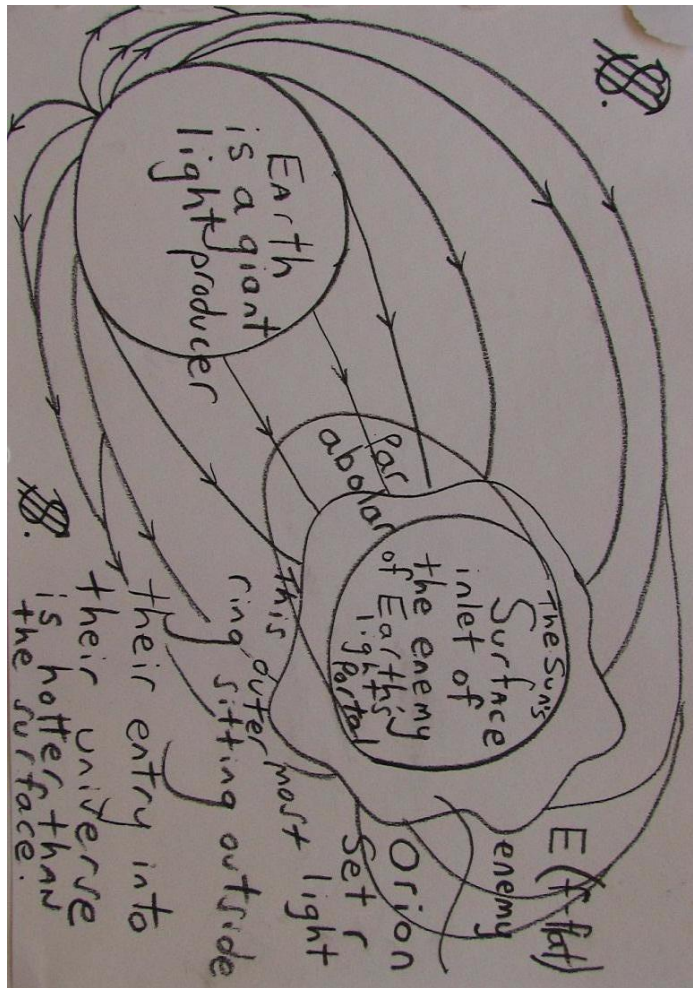 EArth
is a giant
light producer
Par
abolar
The Sun's
Surface
inlet of
the enemy
of Earth's
light's
Portal
E (f flat)
enemy
Orion
Set r
this outer most light
ring sitting outside
their entry into
their universe
is hotter thAn
the surface.